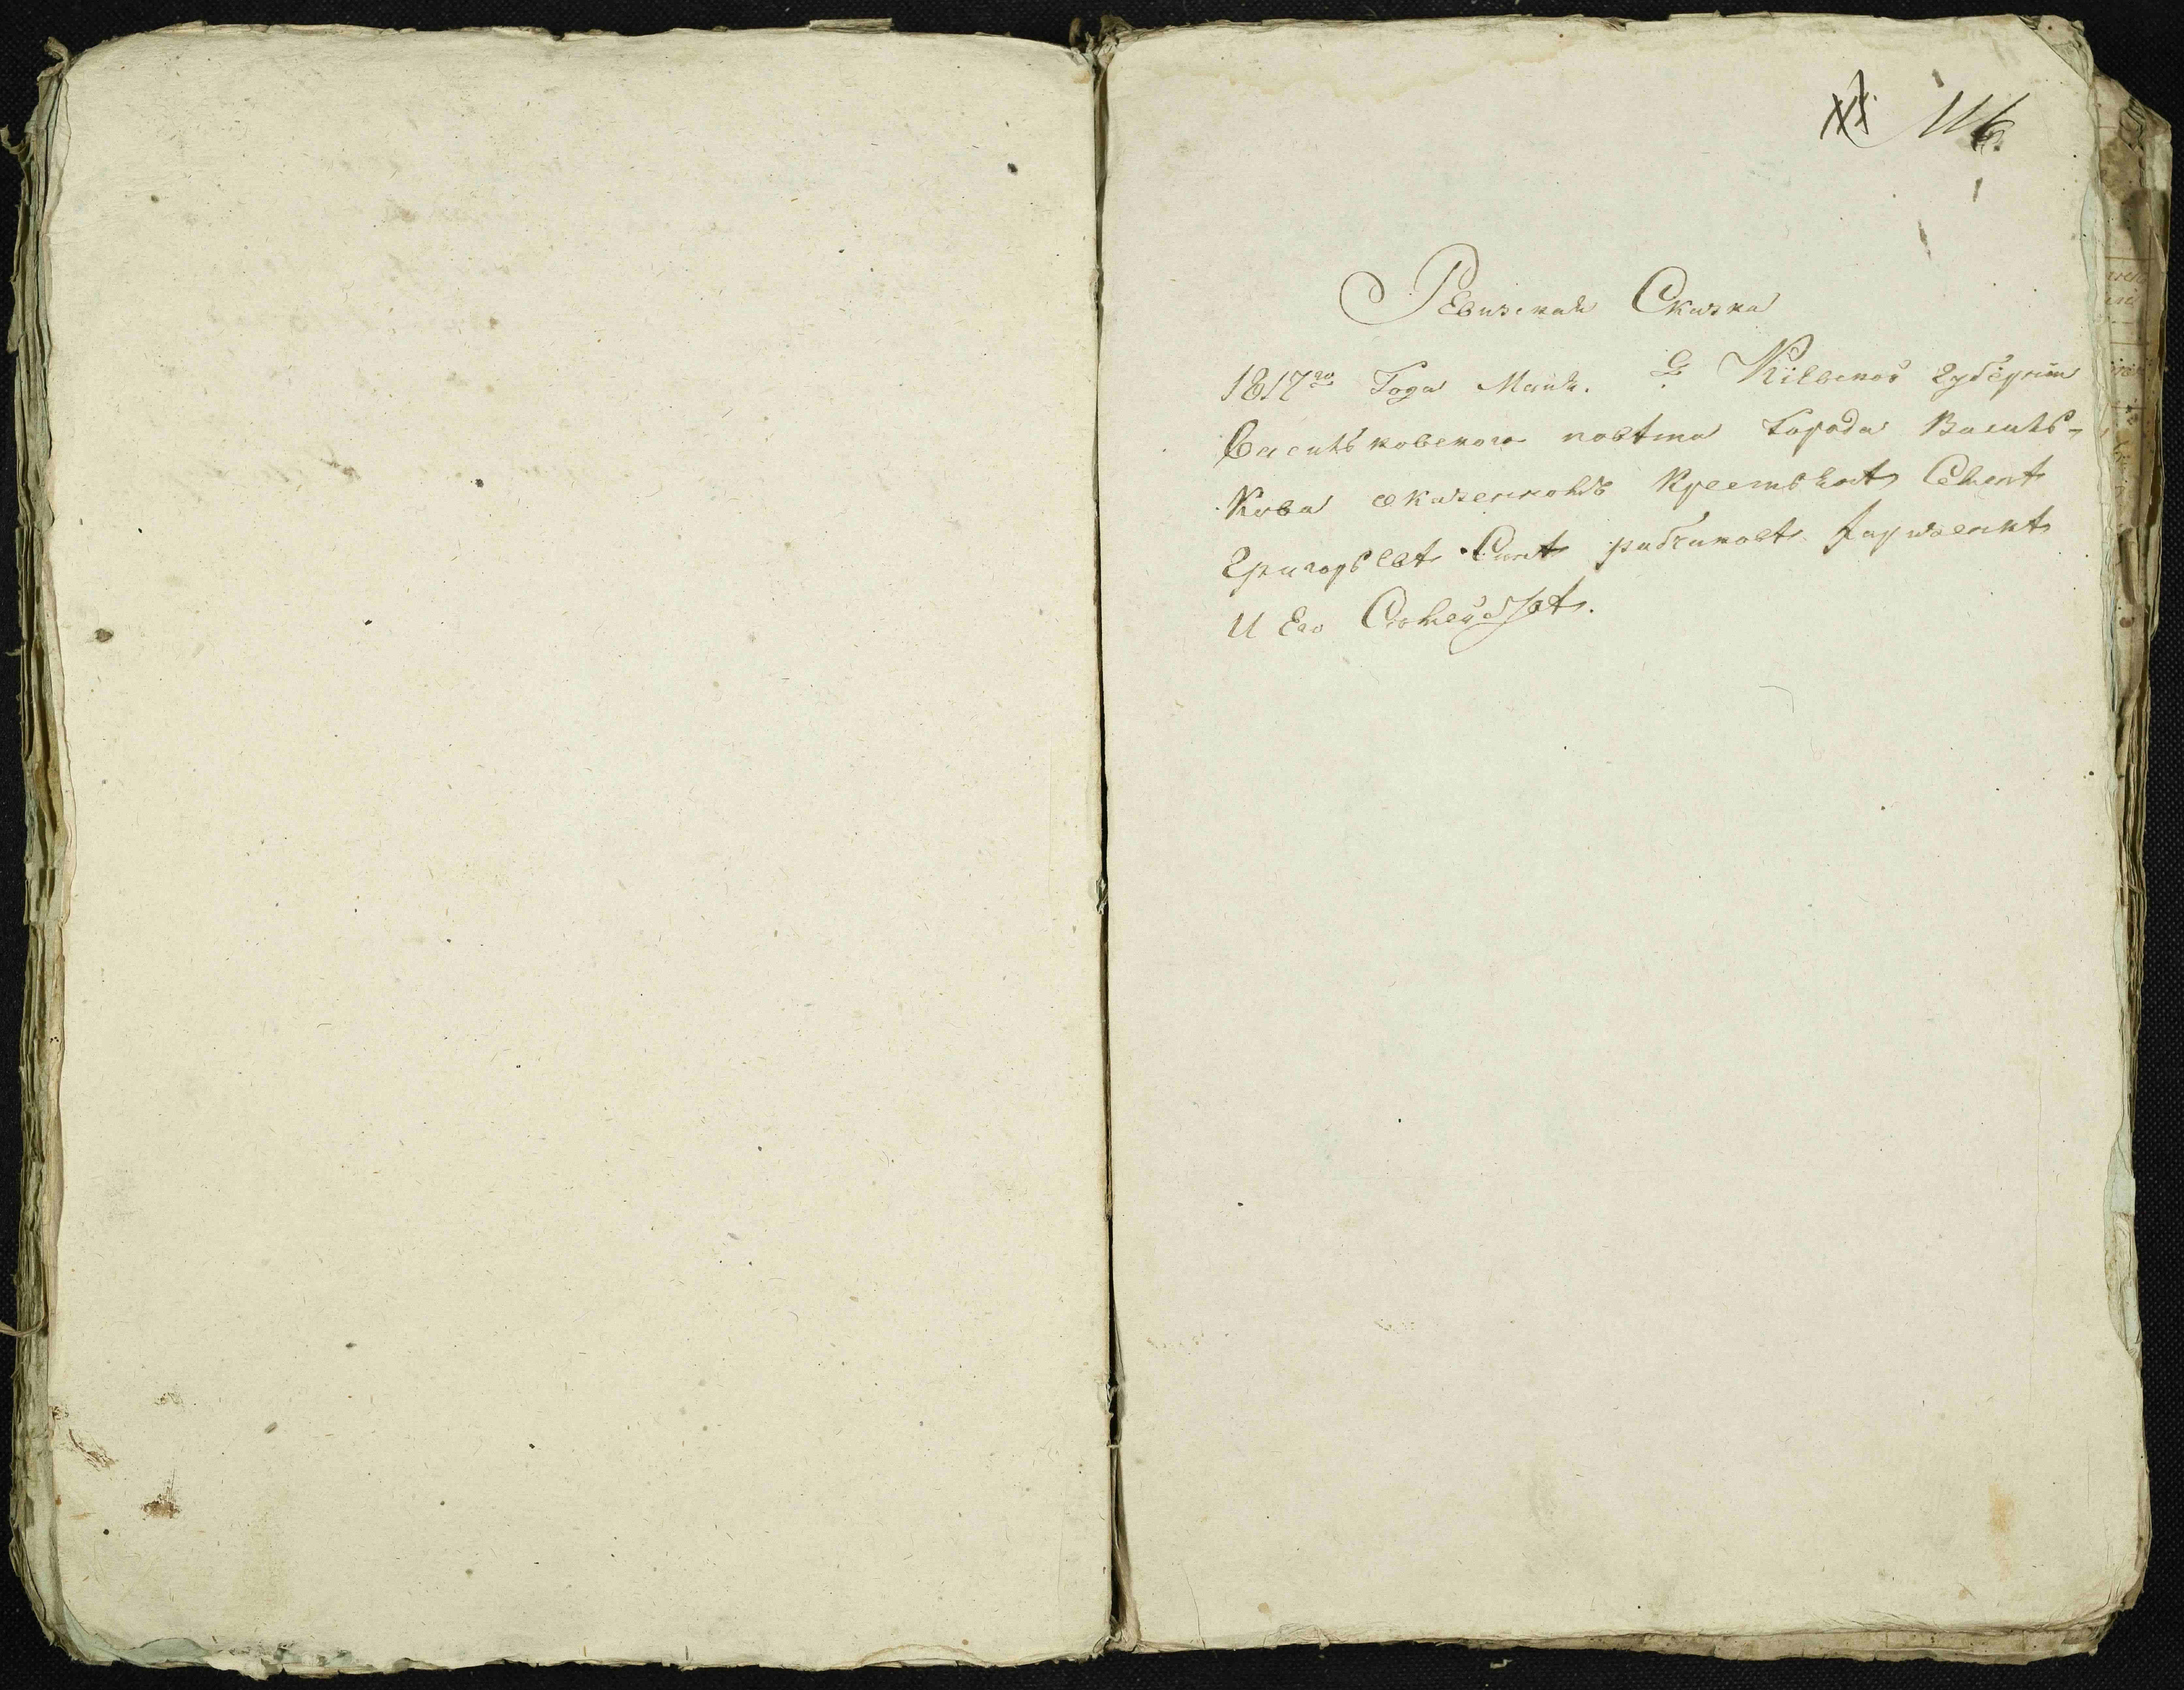 116.
Ревизская Сказка
1817го Года Маия. Кіевской губерніи
Васильковского повѣта города Василь-
кова оказенномъ крестьянѣ Семенѣ
Григорьевѣ
И Его Семействѣ.